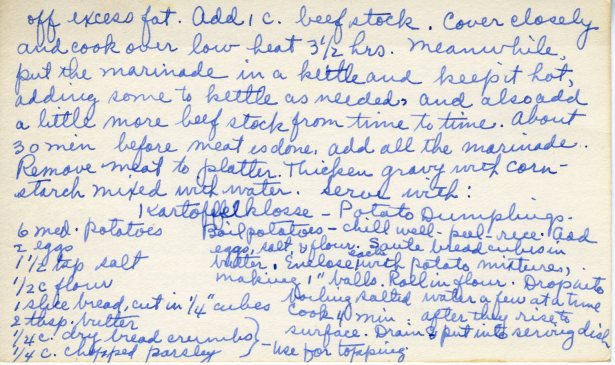 off excess fat. Add 1 c. beef stock. Cover closely
and cook over low heat 3 1/2 hrs. Meanwhile,
put the marinade in a kettle and keep it hot,
adding some to kettle as needed, and also add
a little more beef stock from time to time. About
30 min before meat is done, add all the marinade.
Remove meat to platter. Thicken gravy with corn-
starch mixed with water. Serve with:
Kartoffelklosse - Potato Dumplings.
6 med. potatoes
2 eggs
1 1/2 tsp salt
1/2 c flour
1 slice bread, cut in 1/4" cubes
2 tbsp. butter
1/4 c. dry bread crumbs
1/4 c. chopped parsley } - use for topping
Boil potatoes - chill well - peel - rice. Add
eggs, salt & flour. Saute bread cubes in
butter. Enclose each with potato mixture,
making 1" balls. Roll in flour. Drop into
boiling salted water a few at a time
Cook min. after they rise to
surface. Drain & put into serving dish,